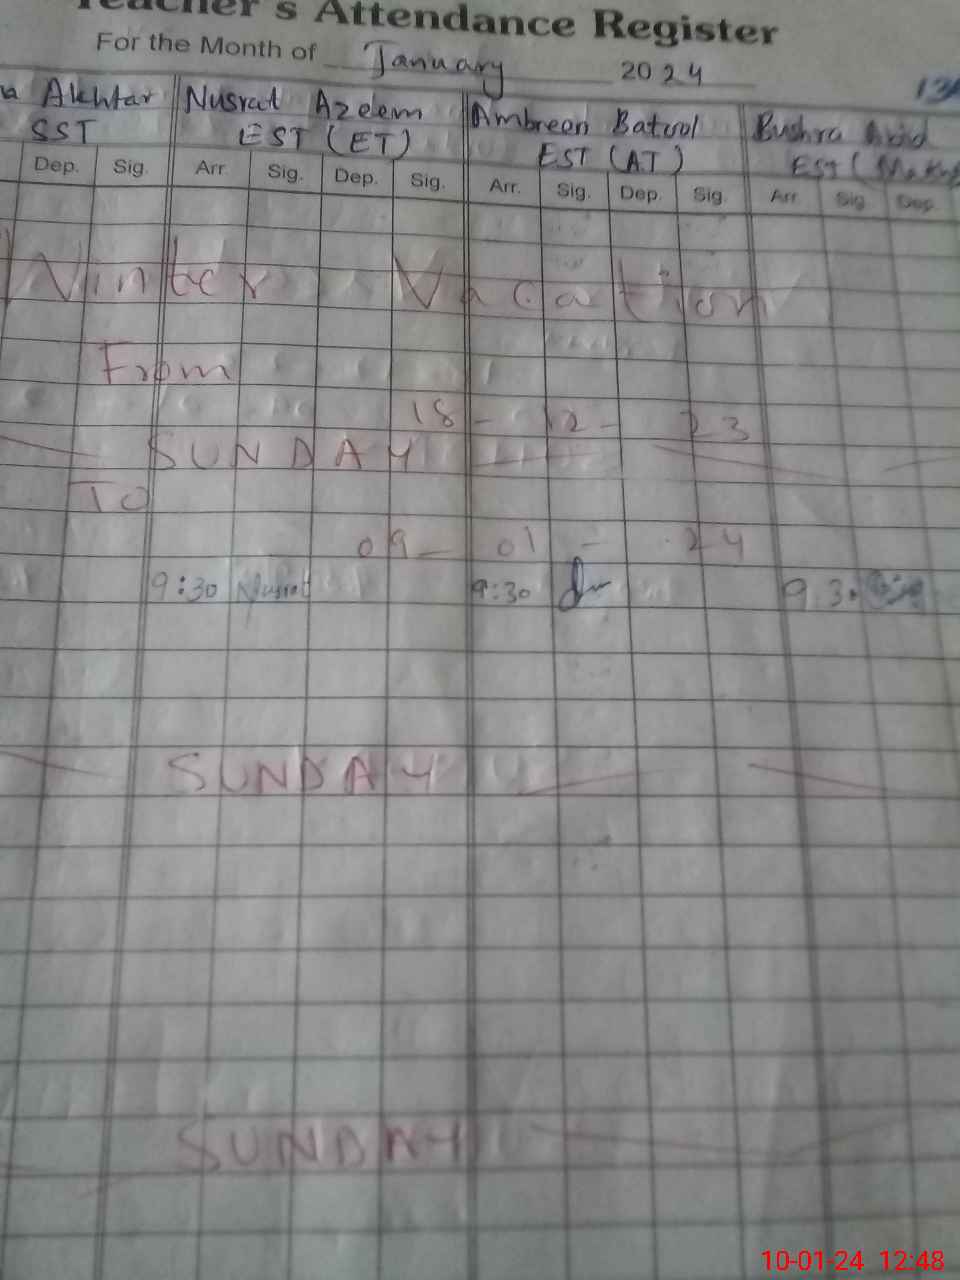 Teacher's Attendance Register
For the Month of January 2024
Akhtar Nusrat Azeem Ambreen Batool Bushra
SST EST (ET) EST (AT) EST (
Dep. Sig. Arr. Sig. Dep. Sig. Arr. Sig. Dep. Sig. Arr. Sig. Dep.
Winter Vacation
From
18-12-23
SUNDAY
TO
09-01-24
9:30 Nusrat 9:30 9.30
SUNDAY
SUNDAY
10-01-24 12:48